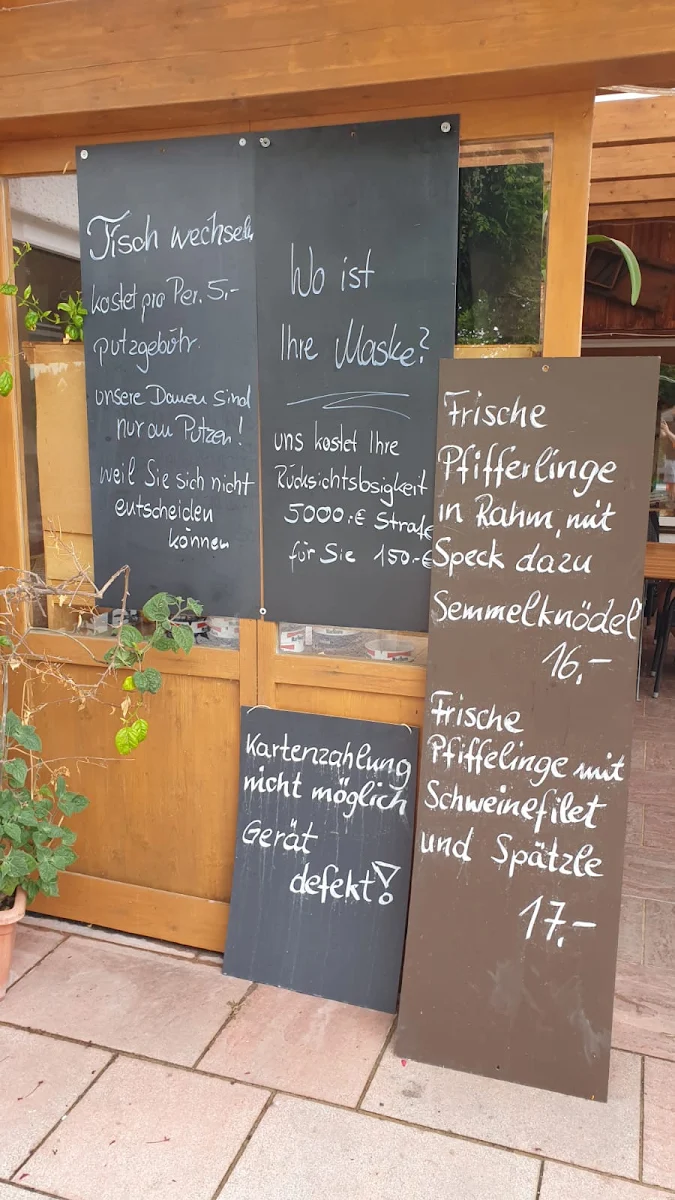 Tisch wechseln
kostet pro Per. 5,-
putzgebühr.
unsere Damen sind
nur am Putzen!
weil Sie sich nicht
entscheiden
können
Wo ist
Ihre Maske?
uns kostet Ihre
Rücksichtsbsigkeit
5000.-€ Strafe
für Sie 150.-€
Frische
Pfifferlinge
in Rahm, mit
Speck dazu
Semmelknödel
16,-
Frische
Pfiffelinge mit
Schweinefilet
und Spätzle
17,-
Kartenzahlung
nicht möglich
Gerät
defekt!